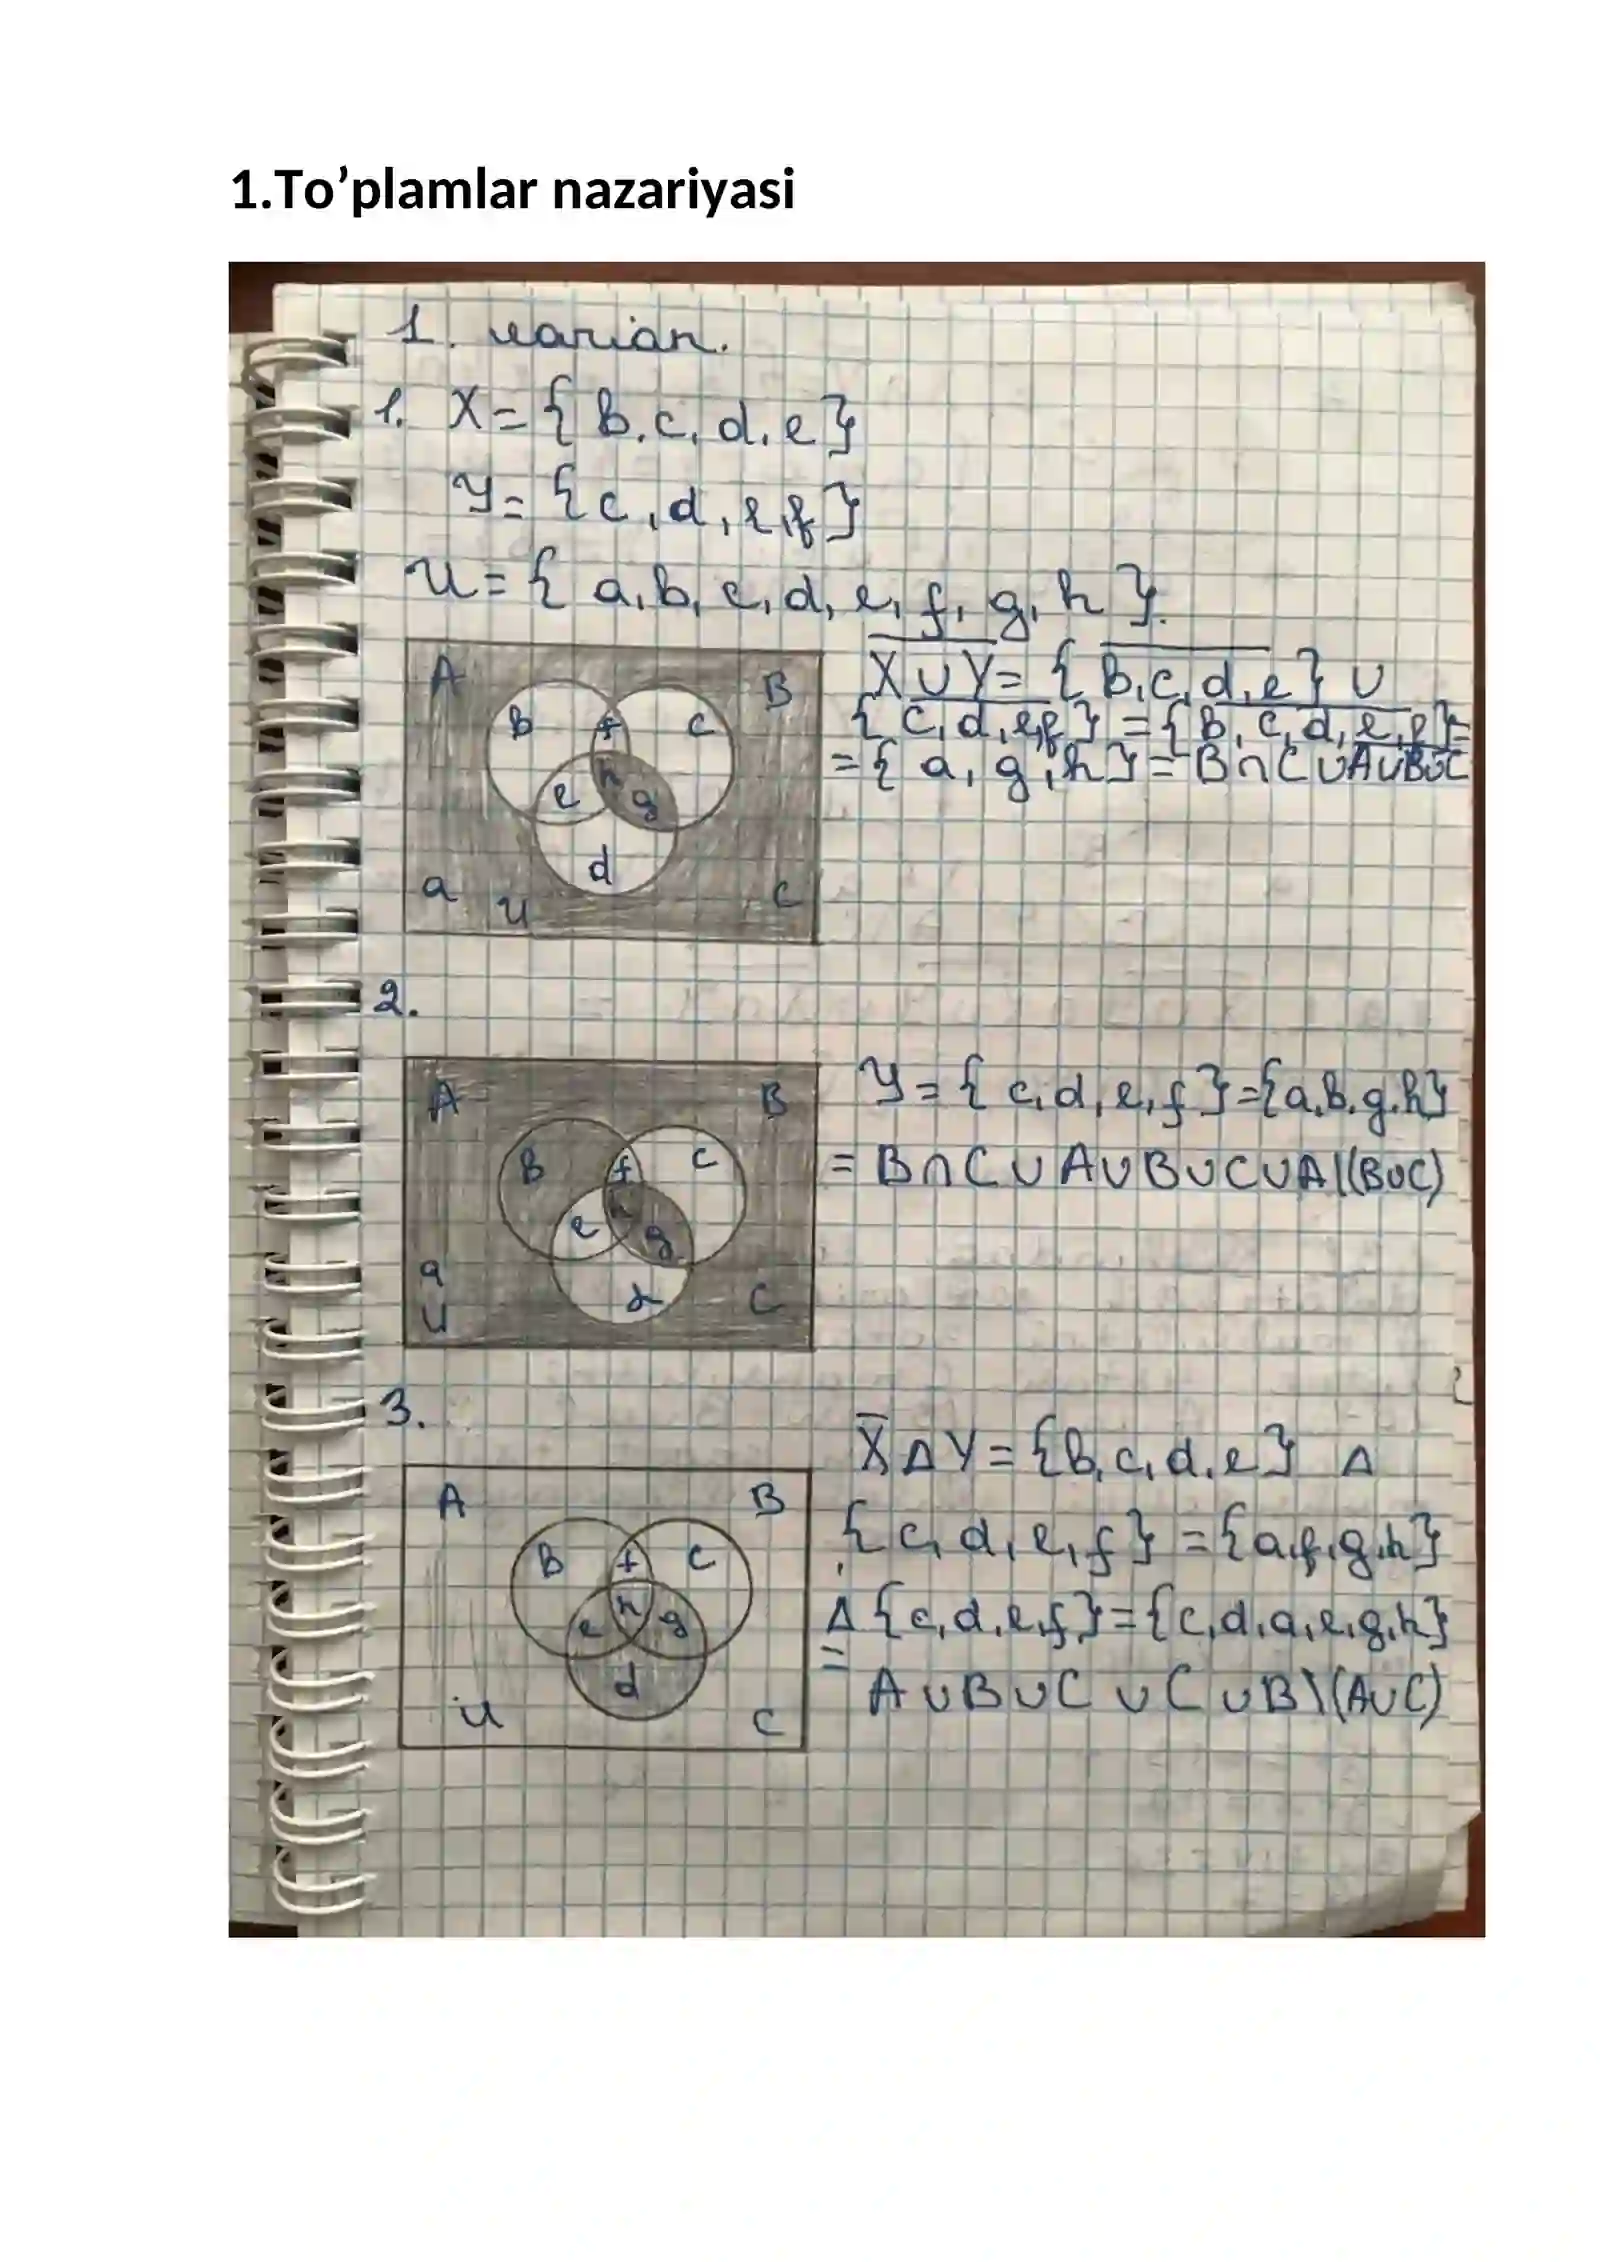 1.To’plamlar nazariyasi
1. varian.
1. X = { B, c, d, e }
Y = { c, d, e, f }
U = { a, b, c, d, e, f, g, h }.
A B
B f C
h
e g
d
a U C
X̅ ∪ Y̅ = { B, c, d, e } ∪
{ c, d, e, f } = { B, c, d, e, f } =
= { a, g, h } = B ∩ C ∪ A ∪ B ∪ C
2.
A B
B f C
h
e g
d
a
U C
Y = { c, d, e, f } = { a, b, g, h }
= B ∩ C ∪ A ∪ B ∪ C ∪ A | (B ∪ C)
3.
A B
B f C
h
e g
d
U C
X̅ Δ Y = { b, c, d, e } Δ
{ c, d, e, f } = { a, f, g, h }
Δ { c, d, e, f } = { c, d, a, e, g, h }
=
A ∪ B ∪ C ∪ C ∪ B \ (A ∪ C)